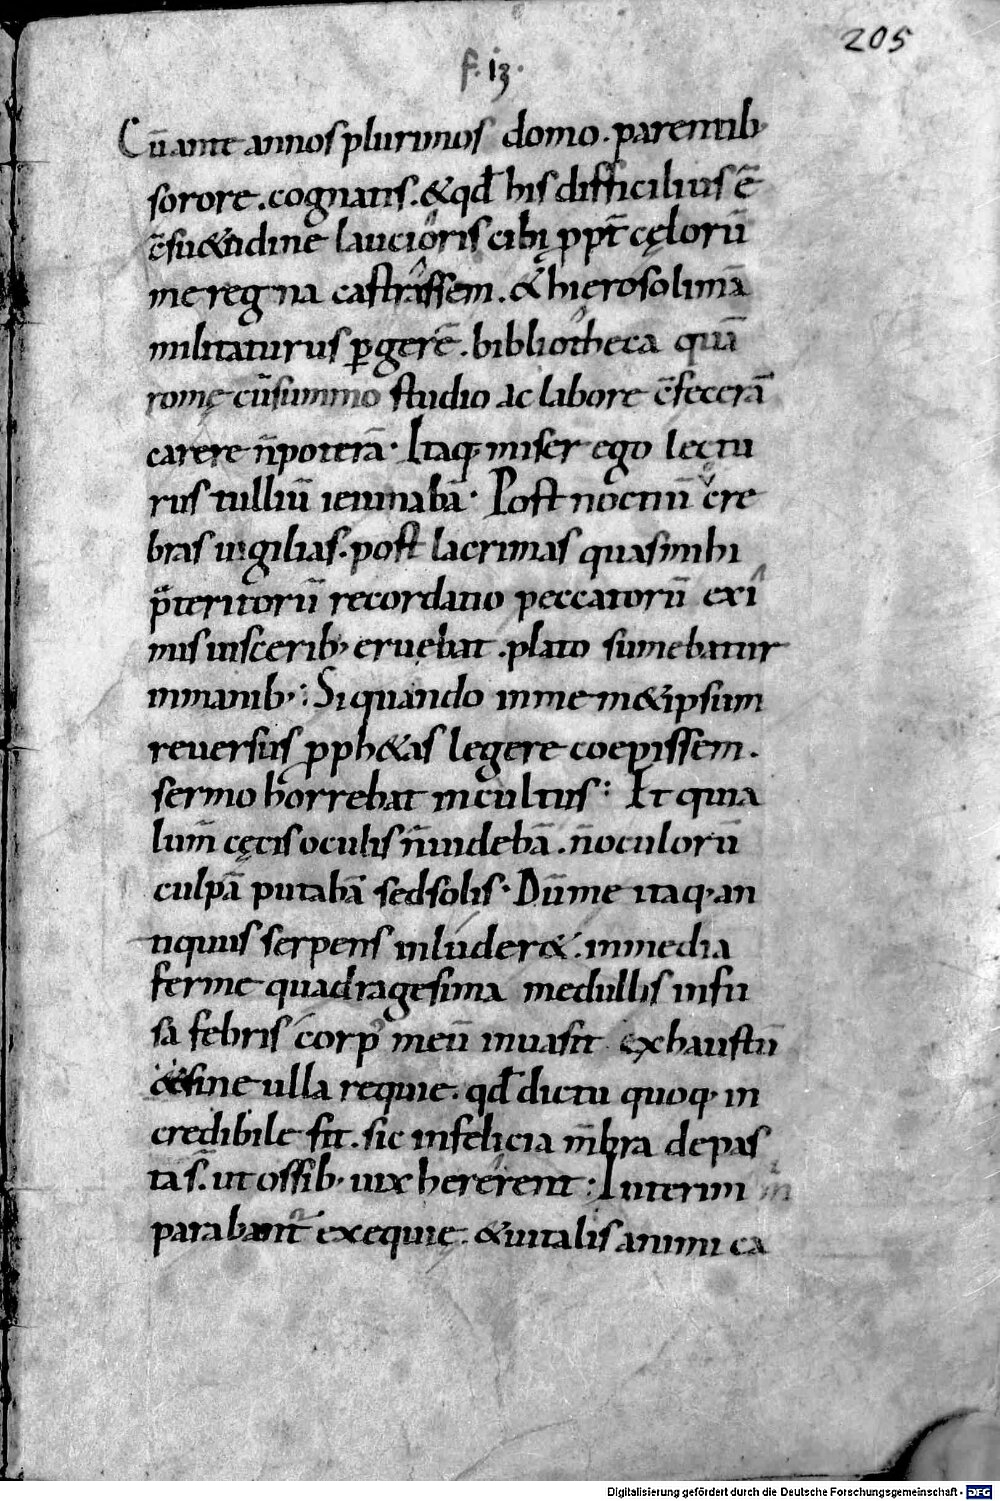 205
f. iz.
Cū ante annos plurimos domo. parentib;
sorore. cognatis. & qđ his difficilius ē
c̄su&udine laucioris cibi ꝓpt̄ cęlorū
me regna castrassem. & hierosolimā
militaturus ꝑgerē. bibliotheca quā
romę cū summo studio ac labore c̄fecerā
carere n̄ poterā. Itaq; miser ego lectu
rus tulliū ieiunabā. Post noctiū cre
bras uigilias. post lacrimas quas mihi
p̄teritorū recordatio peccatorū ex i
mis uiscerib; eruebat. plato sumebatur
in manib;. Si quando in me m&ipsum
reuersus ꝓph&as legere coepissem.
sermo horrebat incultus. Et quia
lum̄ cęcis oculis n̄ uidebā. n̄ oculorū
culpā putabā sed solis. Dū me itaq; an
tiquus serpens inluder&. in media
ferme quadragesima medullis infu
sa febris corpꝰ meū inuasit exhaustū
& sine ulla requie. qđ dictu quoq; in
credibile sit. sic infelicia m̄bra depas
ta s̄. ut ossib; uix hererent. Interim
parabant᷑ exequie. & uitalis animi ca
Digitalisierung gefördert durch die Deutsche Forschungsgemeinschaft - DFG